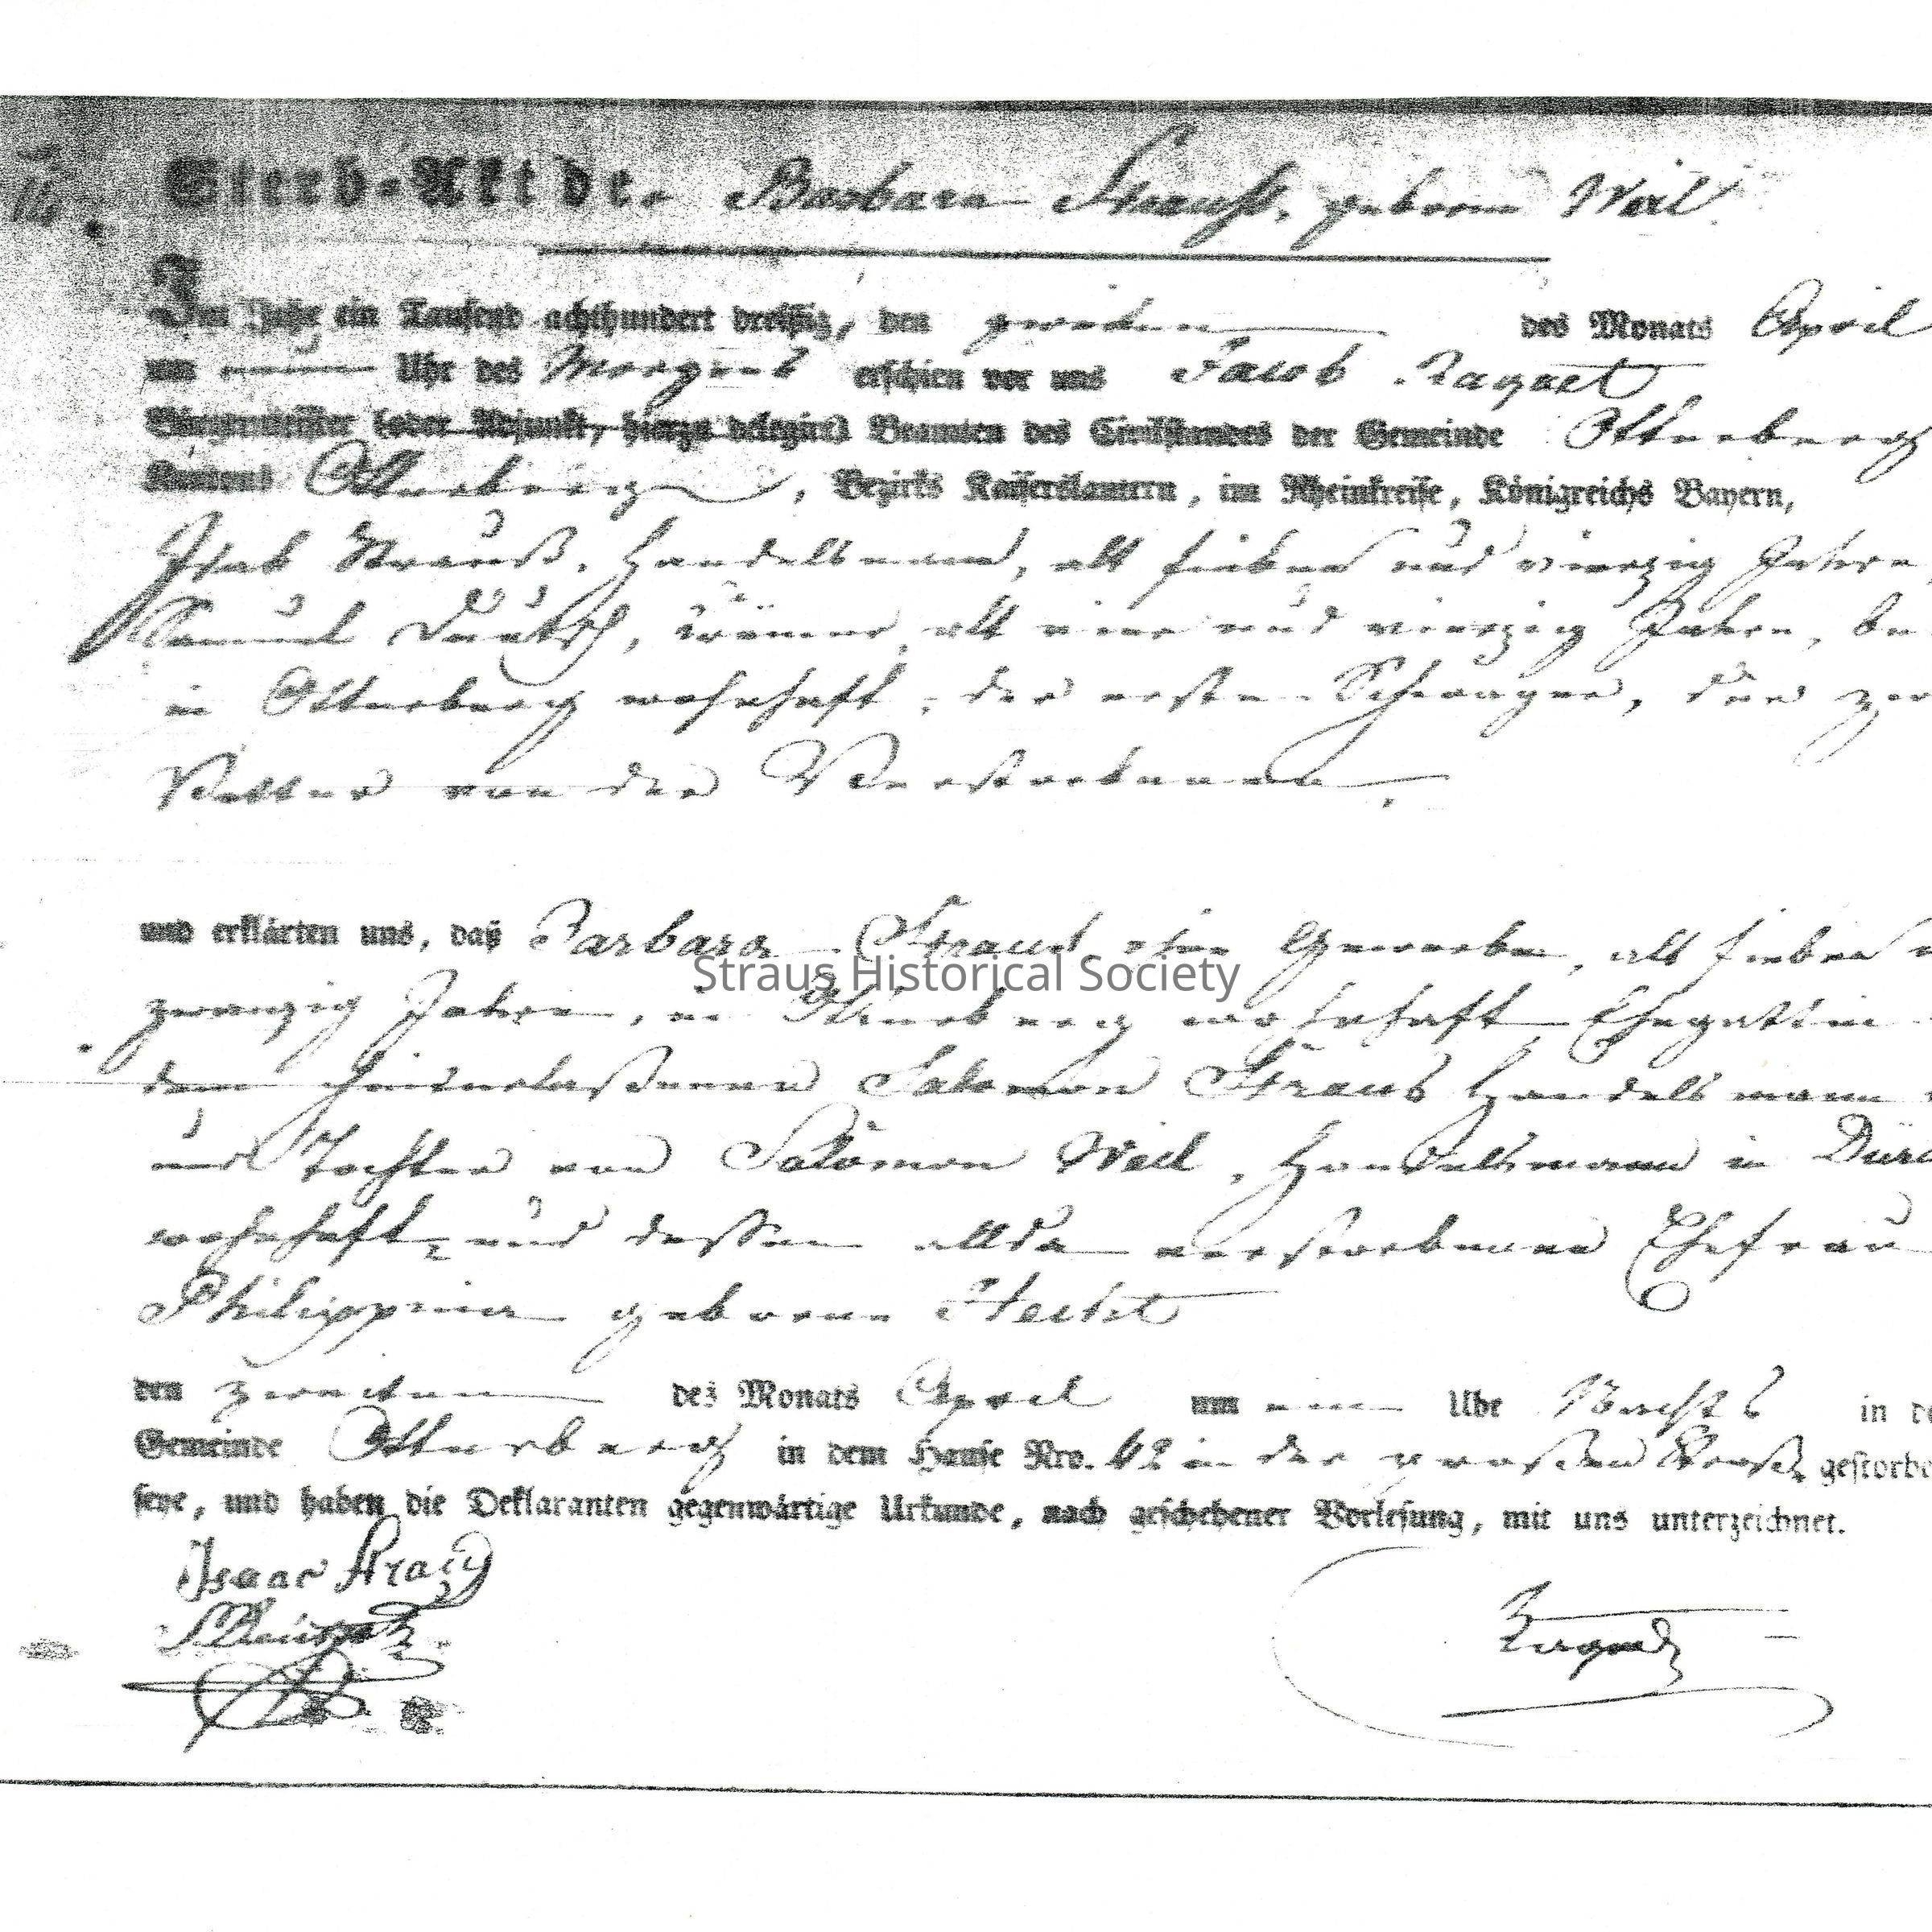 Sterb-Akt de. Barbara Strauß, geborne Weil
Im Jahr ein Tausend achthundert dreißig, den zweiten des Monats April
um neun Uhr des Morgens erschien vor uns Jacob Raquet
Bürgermeister (oder Adjunkt, hierzu delegirt) Beamten des Civilstandes der Gemeinde Otterberg
Kantons Otterberg, Bezirks Kaiserslautern, im Rheinkreise, Königreichs Bayern,
Isaak Strauß, Handelsmann, alt sieben und vierzig Jahre,
Samuel Deutsch, alt vier und vierzig Jahre, be
in Otterberg wohnhaft, der erste Schwager, der zw
Vetter von der Verstorbenen.
und erklärten uns, daß Barbara Straus ohne Gewerbe, alt sieben u
zwanzig Jahre, in Otterberg wohnhaft Ehegattin
dem hinterlaßenen Salomon Straus Handelsmann
und Tochter von Salomon Weil, Handelsmann in Dürc
wohnhaft, und dessen allda verstorbenen Ehefrau
Philippina geborne Hecht
den zweiten des Monats April um ein Uhr Nachts in de
Gemeinde Otterberg in dem Hause Nro. 42 in der großen Straß gestorbe
seye, und haben die Deklaranten gegenwärtige Urkunde, nach geschehener Vorlesung, mit uns unterzeichnet.
Isaac Strauß
Raquet
Straus Historical Society